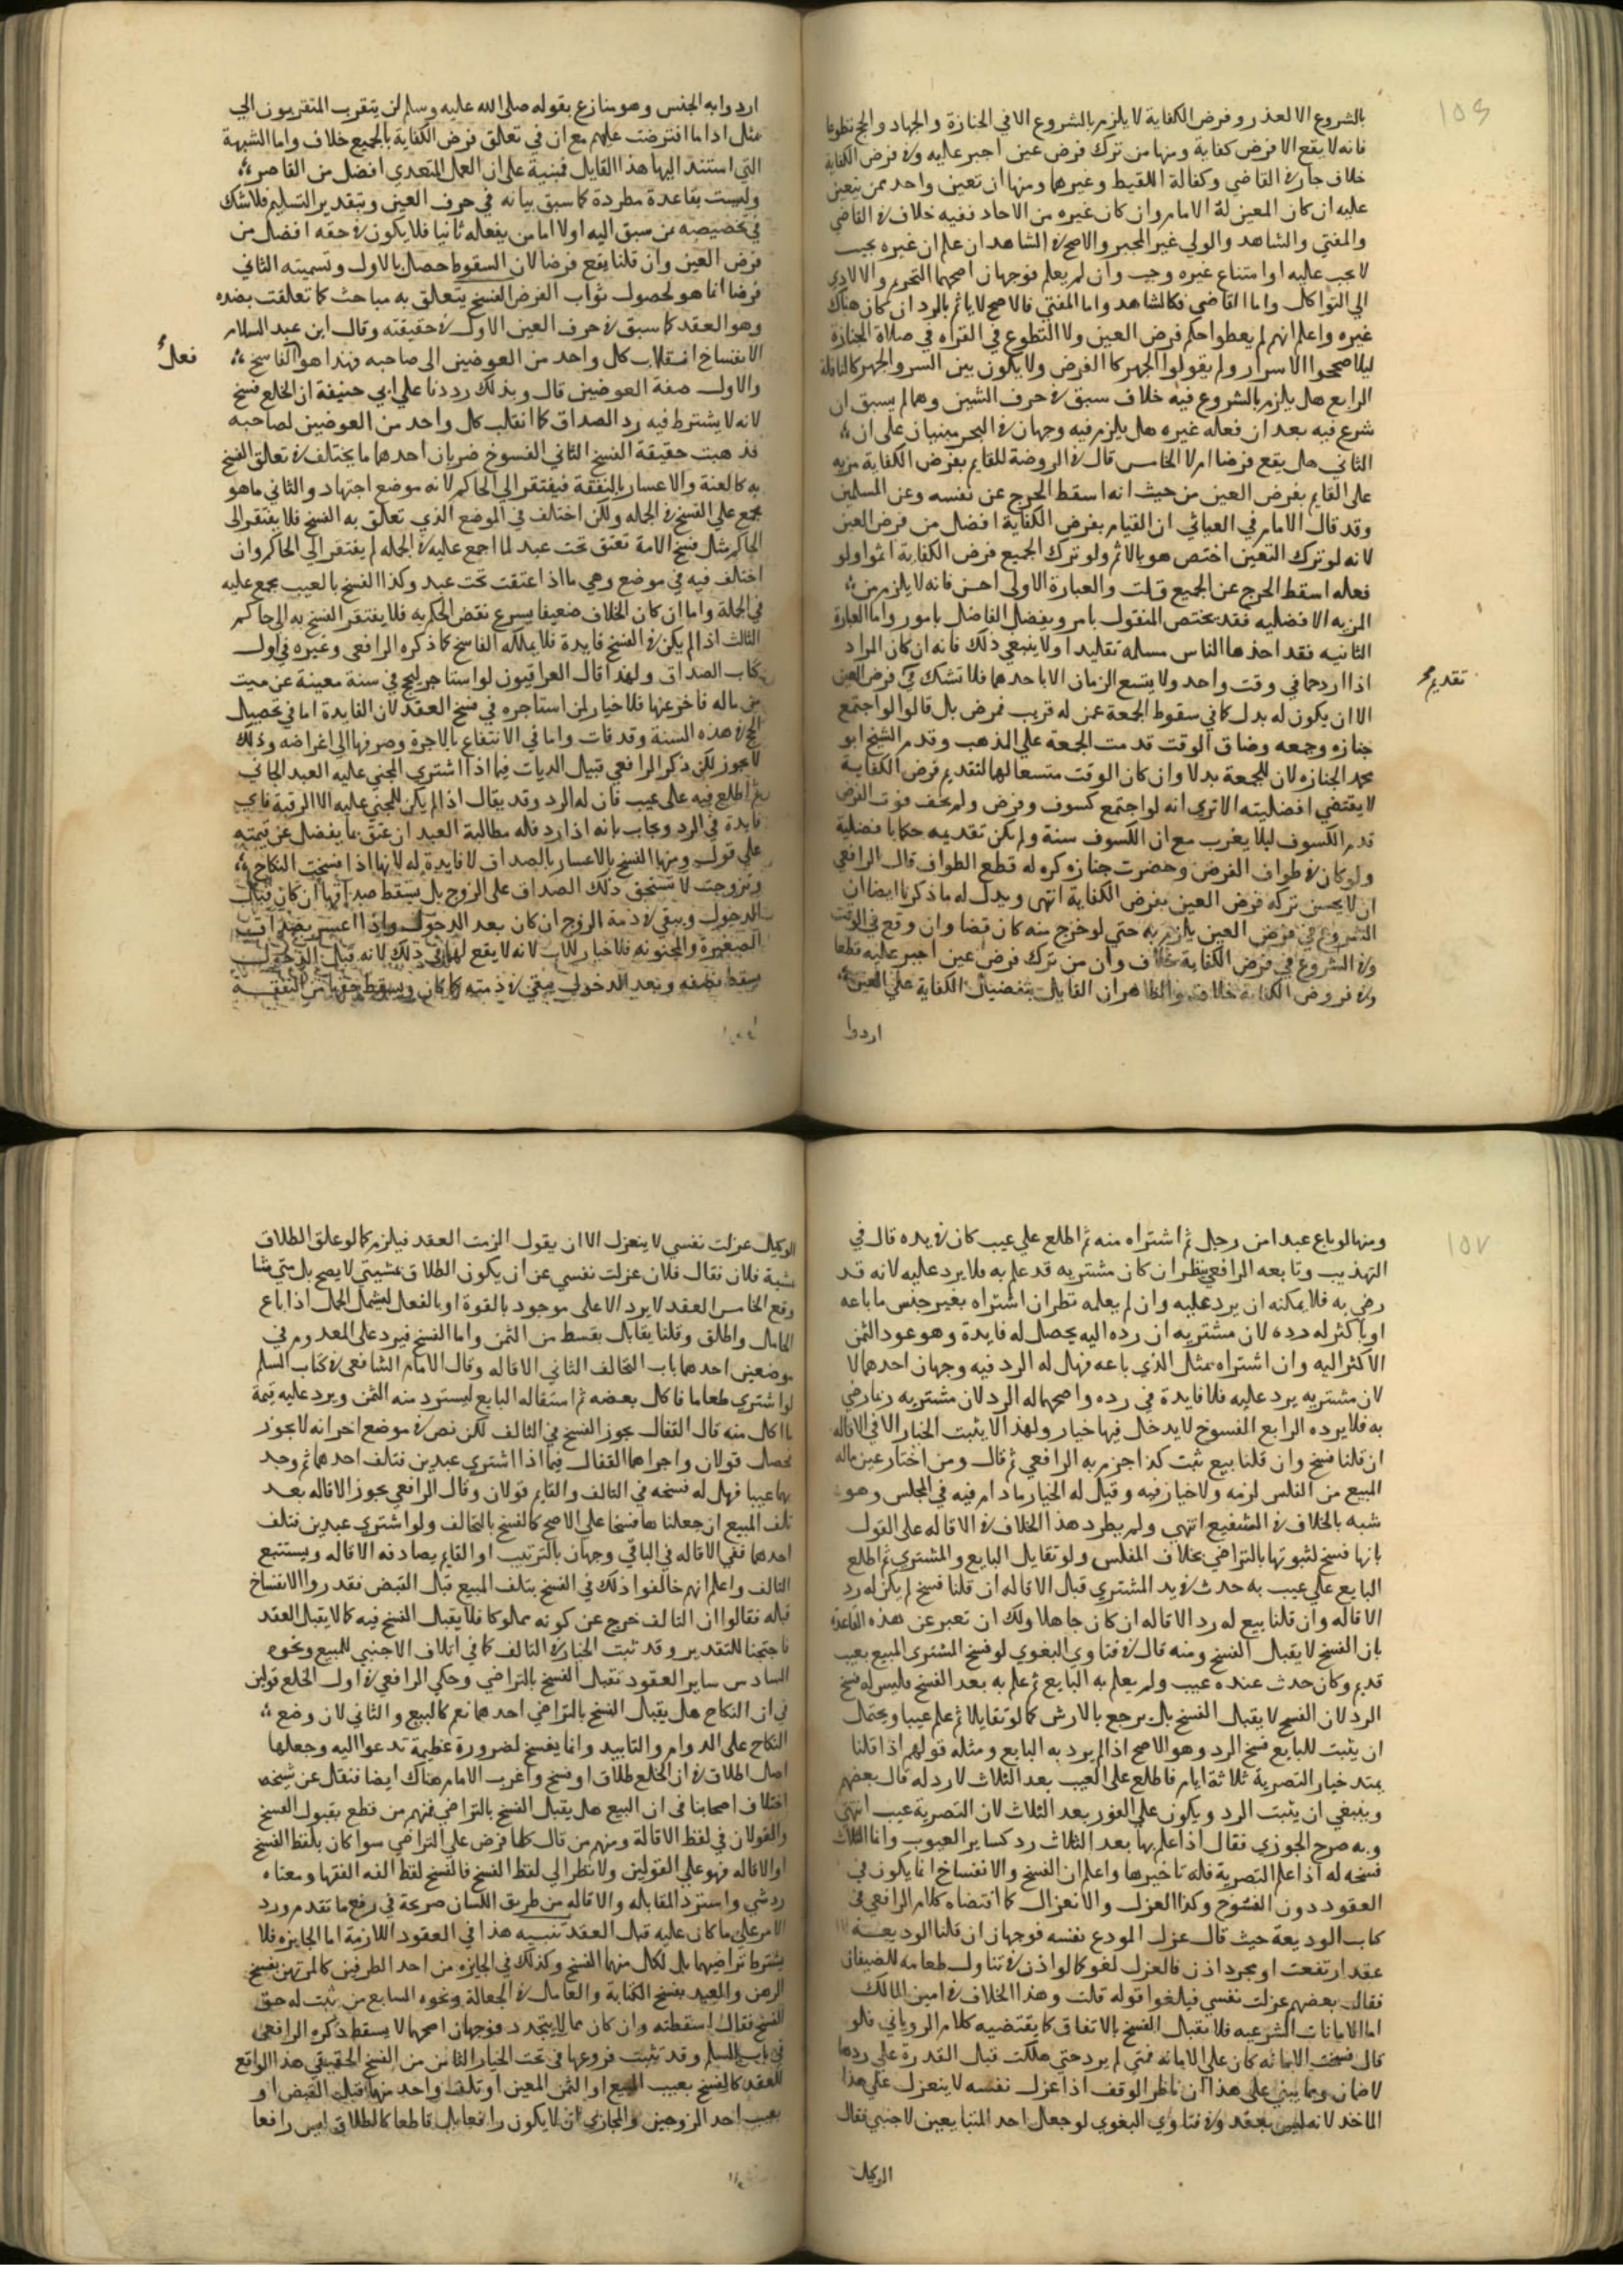 ١٥٦
بالشروع الا لعذر وفرض الكفاية لا يلزم بالشروع الا في الجنازة والجهاد والحج تطوعا
فانه لا يقع الا فرض كفاية ومنها من ترك فرض عين اجبر عليه وفي فرض الكفاية
خلاف جار في القاضي وكفالة اللقيط وغيرهما ومنها ان تعين واحد ممن يتعين
عليه ان كان المعين له الامام وان كان غيره من الاحاد ففيه خلاف في القاضي
والمفتي والشاهد والولي غير المجبر والاصح في الشاهد ان علم ان غيره يجيب
لا يجب عليه او امتناع غيره وجب وان لم يعلم فوجهان اصحهما التحريم والا لادى
الي التواكل واما القاضي فكالشاهد واما المفتي فالاصح لا ياثم بالرد ان كان هناك
غيره واعلم انهم لم يعطوا حكم فرض العين ولا التطوع في القراه في صلاة الجنازة
ليلا صححوا الاسرار ولم يقولوا الجهر كالفرض ولا يكون بين السر والجهر كالنافلة
الرابع هل يلزم بالشروع فيه خلاف سبق في حرف الشين وهما لم يسبق ان
شرع فيه بعد ان فعله غيره هل يلزم فيه وجهان في البحر مبنيان على ان
الثاني هل يقع فرضا ام لا الخامس قال في الروضة للقايم بفرض الكفاية مزيه
على القايم بفرض العين من حيث انه اسقط الحرج عن نفسه وعن المسلمين
وقد قال الامام في الغياثي ان القيام بفرض الكفاية افضل من فرض العين
لانه لو ترك التعين اختص هو بالاثم ولو ترك الجميع فرض الكفاية اثموا ولو
فعله اسقط الحرج عن الجميع قلت والعبارة الاولى احسن فانه لا يلزم من
المزيه الافضليه فقد يختص المفضول بامر ويفضل الفاضل بامور واما العبارة
الثانيه فقد اخذها الناس مسلمه تقليدا ولا ينبغي ذلك فانه ان كان المراد
تقديم
اذا ازدحما في وقت واحد ولا يتسع الزمان الا باحدهما فلا تشك في فرض العين
الا ان يكون له بدل كما في سقوط الجمعة عمن له قريب ممرض بل قالوا لو اجتمع
جنازه وجمعه وضاق الوقت قدمت الجمعة على المذهب وقدم الشيخ ابو
محمد الجنازه لان للجمعة بدلا وان كان الوقت متسعا لهما لتقديم فرض الكفاية
لا يقتضي افضليته الا ترى انه لو اجتمع كسوف وفرض ولم يخف فوت الفرض
قدم الكسوف ليلا يغرب مع ان الكسوف سنة ولم يكن تقديمه حكما بافضلية
ولو كان في طواف الفرض وحضرت جنازه كره له قطع الطواف قال الرافعي
ان لا يحسن تركه فرض العين بفرض الكفاية انتهى ويدل له ما ذكرنا ايضا ان
الشروع في فرض العين يلزم به حتي لو خرج منه كان قضا وان وقع في الوقت
وفي الشروع في فرض الكفاية خلاف وان من ترك فرض عين اجبر عليه قطعا
وفي فروض الكفاية خلاف والظاهر ان القايل بتفضيل الكفاية على العين
اردوا
اردوا به الجنس وهو منازع بقوله صلى الله عليه وسلم لن يتقرب المتقربون الي
بمثل اداما افترضت عليهم مع ان في تعلق فرض الكفاية بالجميع خلاف واما الشبهة
التي استند اليها هذا القايل فمبنية على ان العمل المتعدي افضل من القاصر
وليست بقاعدة مطردة كما سبق بيانه في حرف العين وبتقدير التسليم فلا شك
في تخصيصه بمن سبق اليه اولا اما من يفعله ثانيا فلا يكون في حقه افضل من
فرض العين وان قلنا يقع فرضا لان السقوط حصل بالاول وتسميته الثاني
فرضا انما هو لحصول ثواب الفرض الفسخ يتعلق به مباحث كما تعلقت بضده
وهو العقد كما سبق في حرف العين الاول في حقيقته وقال ابن عبد السلام
الانفساخ انقلاب كل واحد من العوضين الى صاحبه فهذا هو الفاسخ
فعل
والاول صفة العوضين قال وبذلك رددنا على ابي حنيفة ان الخلع فسخ
لانه لا يشترط فيه رد الصداق كما انقلب كل واحد من العوضين لصاحبه
فذهبت حقيقة الفسخ الثاني الفسوخ ضربان احدهما ما يختلف في تعلق الفسخ
به كالعنة والاعسار بالنفقة فيفتقر الي الحاكم لانه موضع اجتهاد والثاني ما هو
مجمع على الفسخ في الجمله ولكن اختلف في الموضع الذي تعلق به الفسخ فلا يفتقر الى
الحاكم مثل فسخ الامة تعتق تحت عبد لما اجمع عليه في الجمله لم يفتقر الي الحاكم وان
اختلف فيه في موضع وهي ما اذا عتقت تحت عبد وكذا الفسخ بالعيب مجمع عليه
في الجملة واما ان كان الخلاف ضعيفا يسرع نقض الحكم به فلا يفتقر الفسخ به الى حاكم
الثالث اذا لم يكن في الفسخ فايدة فلا يملكه الفاسخ كما ذكره الرافعي وغيره في اول
كتاب الصداق ولهذا قال العراقيون لو استاجر ليحج في سنة معينة عن ميت
من ماله فاخر عنها فلا خيار لمن استاجره في فسخ العقد لان الفايدة اما في تحصيل
الحج في هذه السنة وقد فات واما في الانتفاع بالاجرة وصرفها الى اغراضه وذلك
لا يجوز لكن ذكر الرافعي قبيل الديات فيما اذا اشترى المجني عليه العبد الجاني
ثم اطلع فيه على عيب فان له الرد وقد يقال اذا لم يكن للمجني عليه الا الرقبة فاي
فايدة في الرد ويجاب بانه اذا رد فله مطالبة العبد ان عتق بما يفضل عن قيمته
على قول ومنها الفسخ بالاعسار بالصداق لا فايدة له لانها اذا فسخت النكاح
وتزوجت لا تستحق ذلك الصداق على الزوج بل يسقط صداقها ان كان قبل
الدخول ويبقى في ذمة الزوج ان كان بعد الدخول واذا اعسر بصداق
الصغيرة والمجنونه فلا خيار للاب لانه لا يقع لها في ذلك لانه قبل الدخول
يسقط نصفه وبعد الدخول يبقى في ذمته كما كان ويسقط حقها من النفقة
١٥٧
ومنها لو باع عبدا من رجل ثم اشتراه منه ثم اطلع على عيب كان في يده قال في
التهذيب وتابعه الرافعي ينظر ان كان مشتريه قد علم به فلا يرد عليه لانه قد
رضي به فلا يمكنه ان يرد عليه وان لم يعلمه نظر ان اشتراه بغير جنس ما باعه
او باكثر له رده لان مشتريه ان رده اليه يحصل له فايدة وهو عود الثمن
الاكثر اليه وان اشتراه بمثل الذي باعه فهل له الرد فيه وجهان احدهما لا
لان مشتريه يرد عليه فلا فايدة في رده واصحهما له الرد لان مشتريه ربما رضي
به فلا يرده الرابع الفسوخ لا يدخل فيها خيار ولهذا لا يثبت الخيار الا في الاقاله
ان قلنا فسخ وان قلنا بيع ثبت كذا جزم به الرافعي ثم قال ومن اختار عين ماله
المبيع من الفلس لزمه ولا خيار فيه وقيل له الخيار ما دام فيه في المجلس وهو
شبه بالخلاف في الشفيع انتهي ولم يطرد هذا الخلاف في الاقاله على القول
بانها فسخ لثبوتها بالتراضي بخلاف المفلس ولو تقايل البايع والمشتري ثم اطلع
البايع على عيب به حدث في يد المشتري قبل الاقاله ان قلنا فسخ لم يكن له رد
الاقاله وان قلنا بيع له رد الاقاله ان كان جاهلا ولك ان تعبر عن هذه القاعدة
بان الفسخ لا يقبل الفسخ ومنه قال في فتاوي البغوي لو فسخ المشتري المبيع بعيب
قديم وكان حدث عنده عيب ولم يعلم به البايع ثم علم به بعد الفسخ فليس له فسخ
الرد لان الفسخ لا يقبل الفسخ بل يرجع بالارش كما لو تقايلا ثم علم عيبا ويحتمل
ان يثبت للبايع فسخ الرد وهو الاصح اذا لم يرد به البايع ومثله قولهم اذا قلنا
يمتد خيار التصرية ثلاثة ايام فاطلع على العيب بعد الثلاث لا رد له قال بعضهم
وينبغي ان يثبت الرد ويكون على الفور بعد الثلاث لان التصرية عيب انتهي
وبه صرح الجوزي فقال اذا علم بها بعد الثلاث رد كساير العيوب وانما الثلاث
فسخه له اذا علم التصرية فله تاخيرها واعلم ان الفسخ والانفساخ انما يكون في
العقود دون الفسوخ وكذا العزل والانعزال كما اقتضاه كلام الرافعي في
كتاب الوديعة حيث قال عزل المودع نفسه فوجهان ان قلنا الوديعة
عقد ارتفعت او مجرد اذن فالعزل لغو كما لو اذن في تناول طعامه للضيفان
فقال بعضهم عزلت نفسي فيلغوا قوله قلت وهذا الخلاف في امين المالك
اما الامانات الشرعيه فلا يقبل الفسخ بالاتفاق كما يقتضيه كلام الروياني فلو
قال فسخت الامانه كان على الامانه فمتي لم يرد حتي هلكت قبل القدرة على ردها
لا ضمان ومما يبني على هذا ان ناظر الوقف اذا عزل نفسه لا ينعزل على هذا
الماخذ لانه ليس بعقد وفي فتاوي البغوي لو جعل احد المتبايعين لاجنبي فقال
الوكيل
الوكيل عزلت نفسي لا ينعزل الا ان يقول الزمت العقد فيلزم كما لو علق الطلاق
بمشية فلان فقال فلان عزلت نفسي عن ان يكون الطلاق بمشيتي لا يصح بل متي شا
وقع الخامس العقد لا يرد الا على موجود بالقوة او بالفعل ليشمل الحمل اذا باع
الحامل واطلق وقلنا يقابل بقسط من الثمن واما الفسخ فيرد على المعدوم في
موضعين احدهما باب التحالف الثاني الاقاله وقال الامام الشافعي في كتاب السلم
لو اشتري طعاما فاكل بعضه ثم استقاله البايع ليسترد منه الثمن ويرد عليه قيمة
ما اكل منه قال القفال يجوز الفسخ في التالف لكن نص في موضع اخر انه لا يجوز
فحصل قولان واجراهما القفال فيما اذا اشتري عبدين فتلف احدهما ثم وجد
بهما عيبا فهل له فسخه في التالف والقايم قولان وقال الرافعي يجوز الاقاله بعد
تلف المبيع ان جعلناها فسخا على الاصح كالفسخ بالتحالف ولو اشتري عبدين فتلف
احدهما ففي الاقاله في الباقي وجهان بالترتيب اذ القايم يصادفه الاقاله ويستتبع
التالف واعلم انهم خالفوا ذلك في الفسخ بتلف المبيع قبل القبض فقدروا الانفساخ
قبله فقالوا ان التالف خرج عن كونه مملوكا فلا يقبل الفسخ فيه كما لا يقبل العقد
فاحتجنا للتقدير وقد ثبت الخيار في التالف كما في اتلاف الاجنبي للمبيع ونحوه
السادس ساير العقود تقبل الفسخ بالتراضي وحكي الرافعي في اول الخلع قولين
في ان النكاح هل يقبل الفسخ بالتراضي احدهما نعم كالبيع والثاني لا لان وضع
النكاح على الدوام والتابيد وانما يفسخ لضرورة عظيمة تدعوا اليه وجعلها
اصل الطلاق في ان الخلع طلاق او فسخ واغرب الامام هناك ايضا فنقل عن شيخه
اختلاف اصحابنا في ان البيع هل يقبل الفسخ بالتراضي فمنهم من قطع بقبول الفسخ
والقولان في لفظ الاقالة ومنهم من قال كلما فرض على التراضي سوا كان بلفظ الفسخ
او الاقاله فهو على القولين ولا نظر الي لفظ الفسخ فالفسخ لفظ الفه الفقها ومعناه
رد شي واسترد المقابله والاقاله من طريق اللسان صريحة في رفع ما تقدم ورد
الامر على ما كان عليه قبل العقد تنبيه هذا في العقود اللازمة اما الجايزه فلا
يشترط تراضيهما بل لكل منهما الفسخ وكذلك في الجايزه من احد الطرفين كالمرتهن يفسخ
الرهن والعبد يفسخ الكتابة والعامل في الجعالة ونحوه السابع من ثبت له حق
الفسخ فقال اسقطته وان كان مما لا يتجدد فوجهان اصحهما لا يسقط ذكره الرافعي
في باب السلم وقد تثبت فروعها في تحت الخيار الثامن من الفسخ الحقيقي هذا الواقع
للعقد كالفسخ بعيب المبيع او الثمن المعين او تلف واحد منهما قبل القبض او
بعيب احد الزوجين والمجازي ان لا يكون رافعا بل قاطعا كالطلاق ليس رافعا